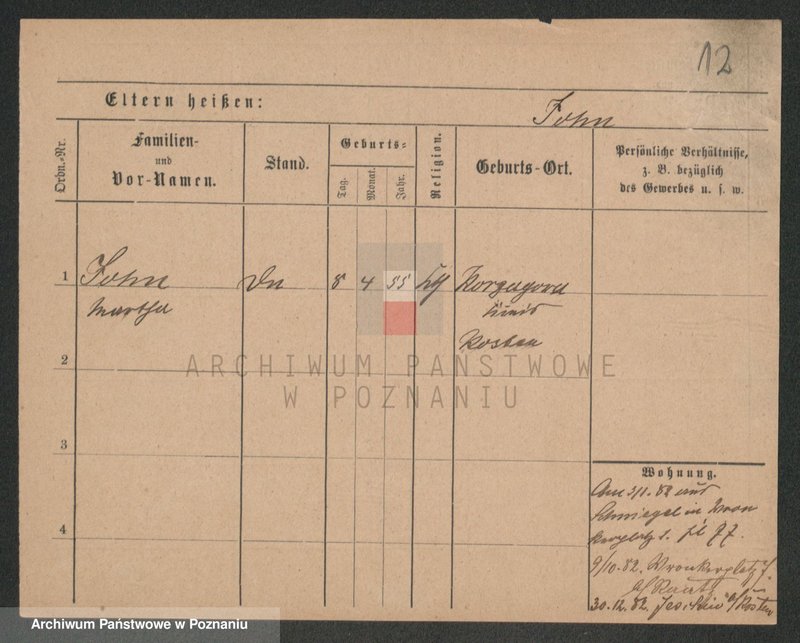 12
Eltern heißen:
John
Ordn.-Nr.
Familien-
und
Vor-Namen.
Stand.
Geburts-
Tag.
Monat.
Jahr.
Religion.
Geburts-Ort.
Persönliche Verhältnisse,
z. B. bezüglich
des Gewerbes u. s. w.
1
John
8
4
55
Martha
Kosten
2
ARCHIWUM PAŃSTWOWE
W POZNANIU
3
4
Wohnung.
Am 3/1. 82 aus
Schmiegel in Wron
kerplatz 1.
9/10. 82. Wronkerplatz
30.12.82.
Archiwum Państwowe w Poznaniu